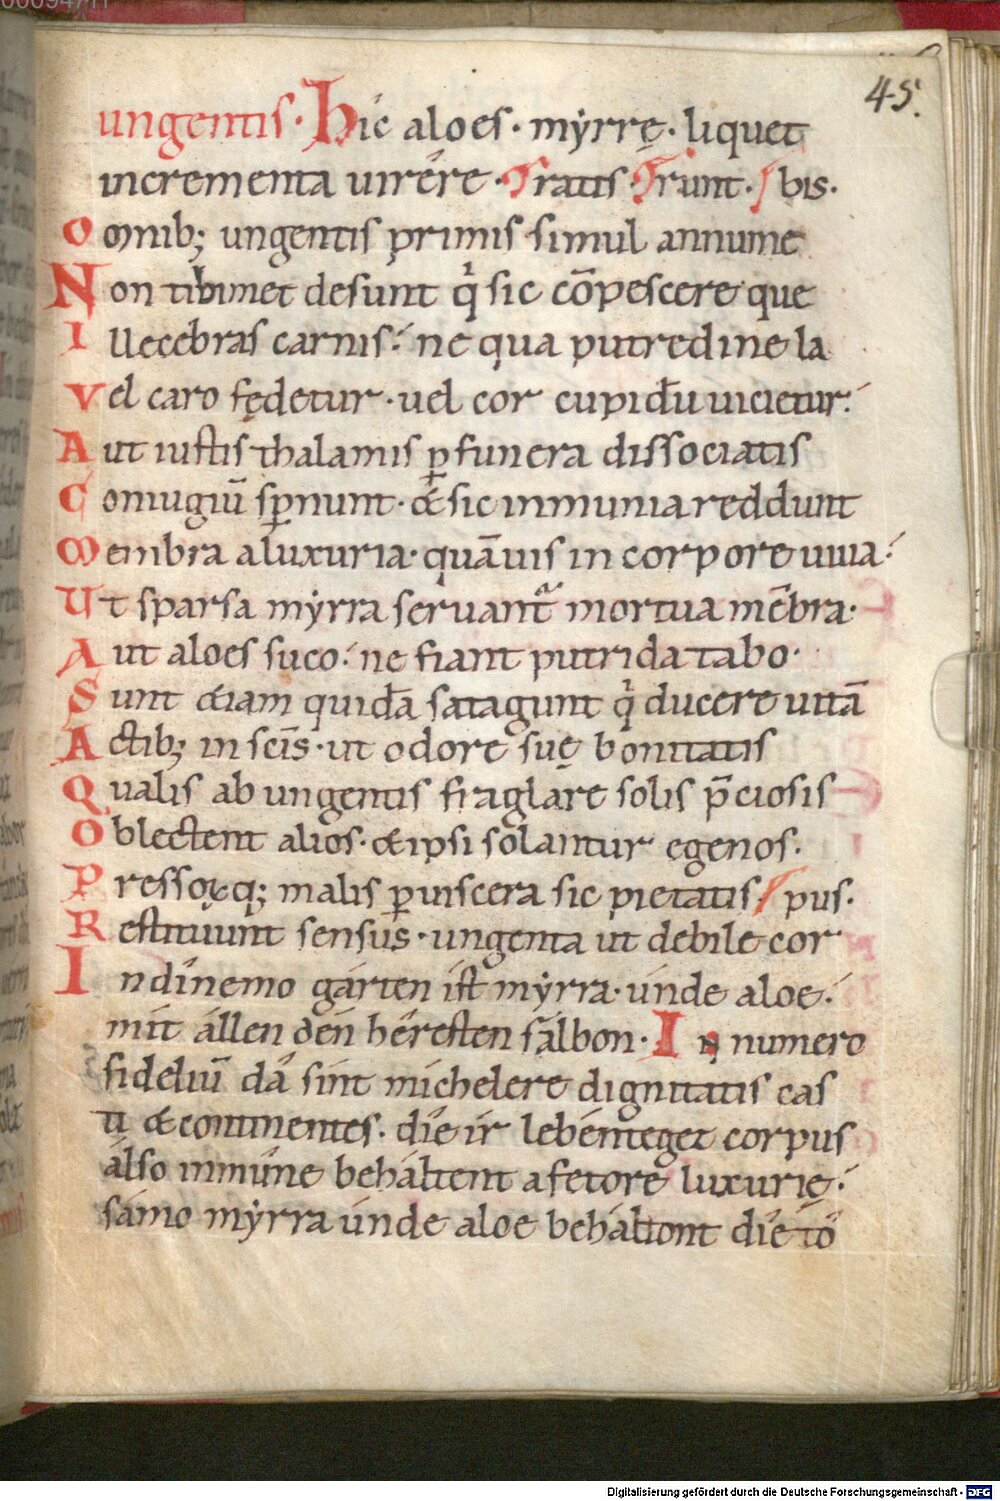 ungentis· Hic aloes· mẏrrę· liquet
incrementa uirére· Gratis· Grunt· / bis·
Omnib; ungentis primis simul annume
Non tibimet desunt q̇ sic cōpescere que
Illecebras carnis:́ ne qua putredine la
Vel caro fędetur· uel cor cupidū uicietur:́
Aut iustis thalamis ꝑ funera dissociatis
Coniugiū sꝑnunt· & sic inmunia reddunt
Membra a luxuria· quāuis in corpore uiua:́
Ut sparsa mẏrra seruantᷣ mortua mēbra·
Aut aloes suco:́ ne fiant putrida tabo·
Sunt &iam quidā satagunt q̇ ducere uitā
Actib; in scīs· ut odore suę bonitatis
Qualis ab ungentis fraglare solis p̄ciosis
Oblectent alios· & ipsi solantur egenos·
Pressoꝝq; malis ꝑ uiscera sic pietatis· / pus·
Restituunt sensus· ungenta ut debile cor
Indínemo gárten ist mẏrra· únde aloe:́
mit állen dén héresten sálbon· In numero
fideliū dá sint míchelere dignitatis cas
ti & continentes· díe ír lebénteget corpus
álso inmúne beháltent a fetore luxurię:́
sámo mẏrra únde aloe beháltont díe tô
45.
Digitalisierung gefördert durch die Deutsche Forschungsgemeinschaft - DFG